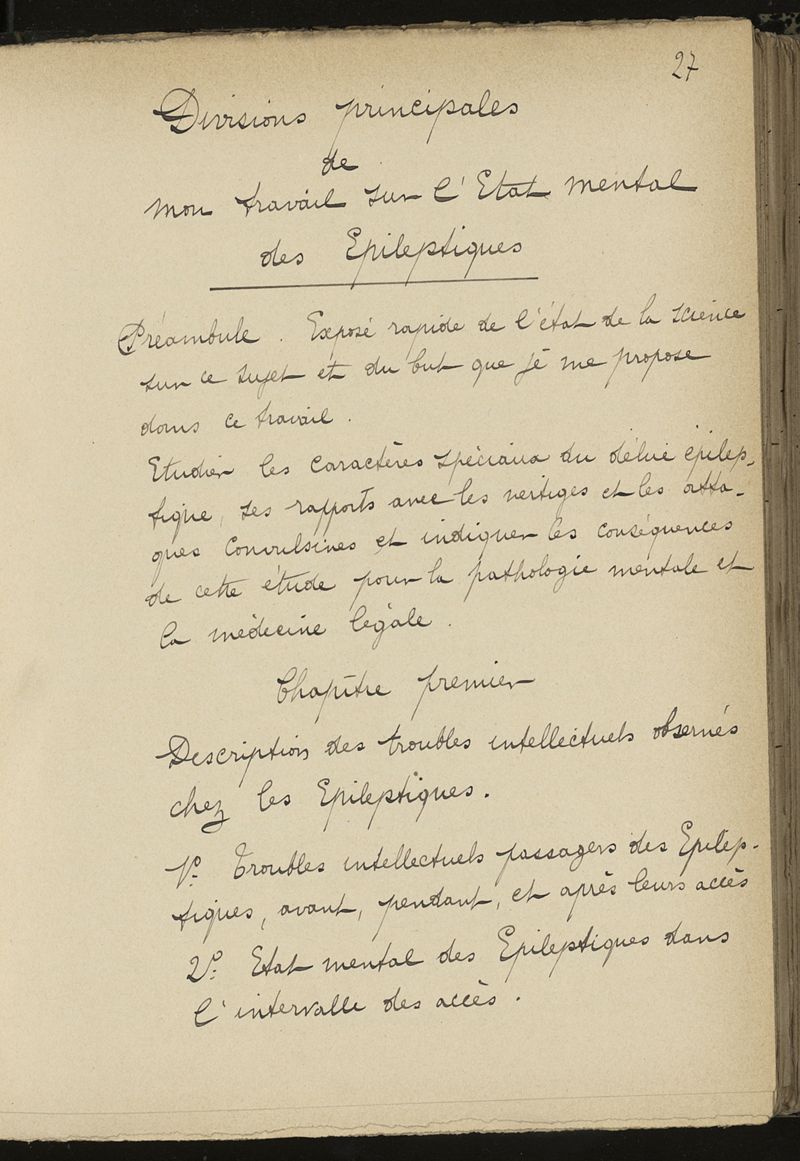 27
Divisions principales
de
mon travail sur l'Etat mental
des Epileptiques
Préambule. Exposé rapide de l'état de la science
sur ce sujet et du but que je me propose
dans ce travail.
Etudier les caractères spéciaux du délire épilep-
tique, ses rapports avec les vertiges et les atta-
ques convulsives et indiquer les conséquences
de cette étude pour la pathologie mentale et
la médecine légale.
Chapitre premier
Description des troubles intellectuels observés
chez les Epileptiques.
1º. Troubles intellectuels passagers des Epilep-
tiques, avant, pendant, et après leurs accès
2º. Etat mental des Epileptiques dans
l'intervalle des accès.